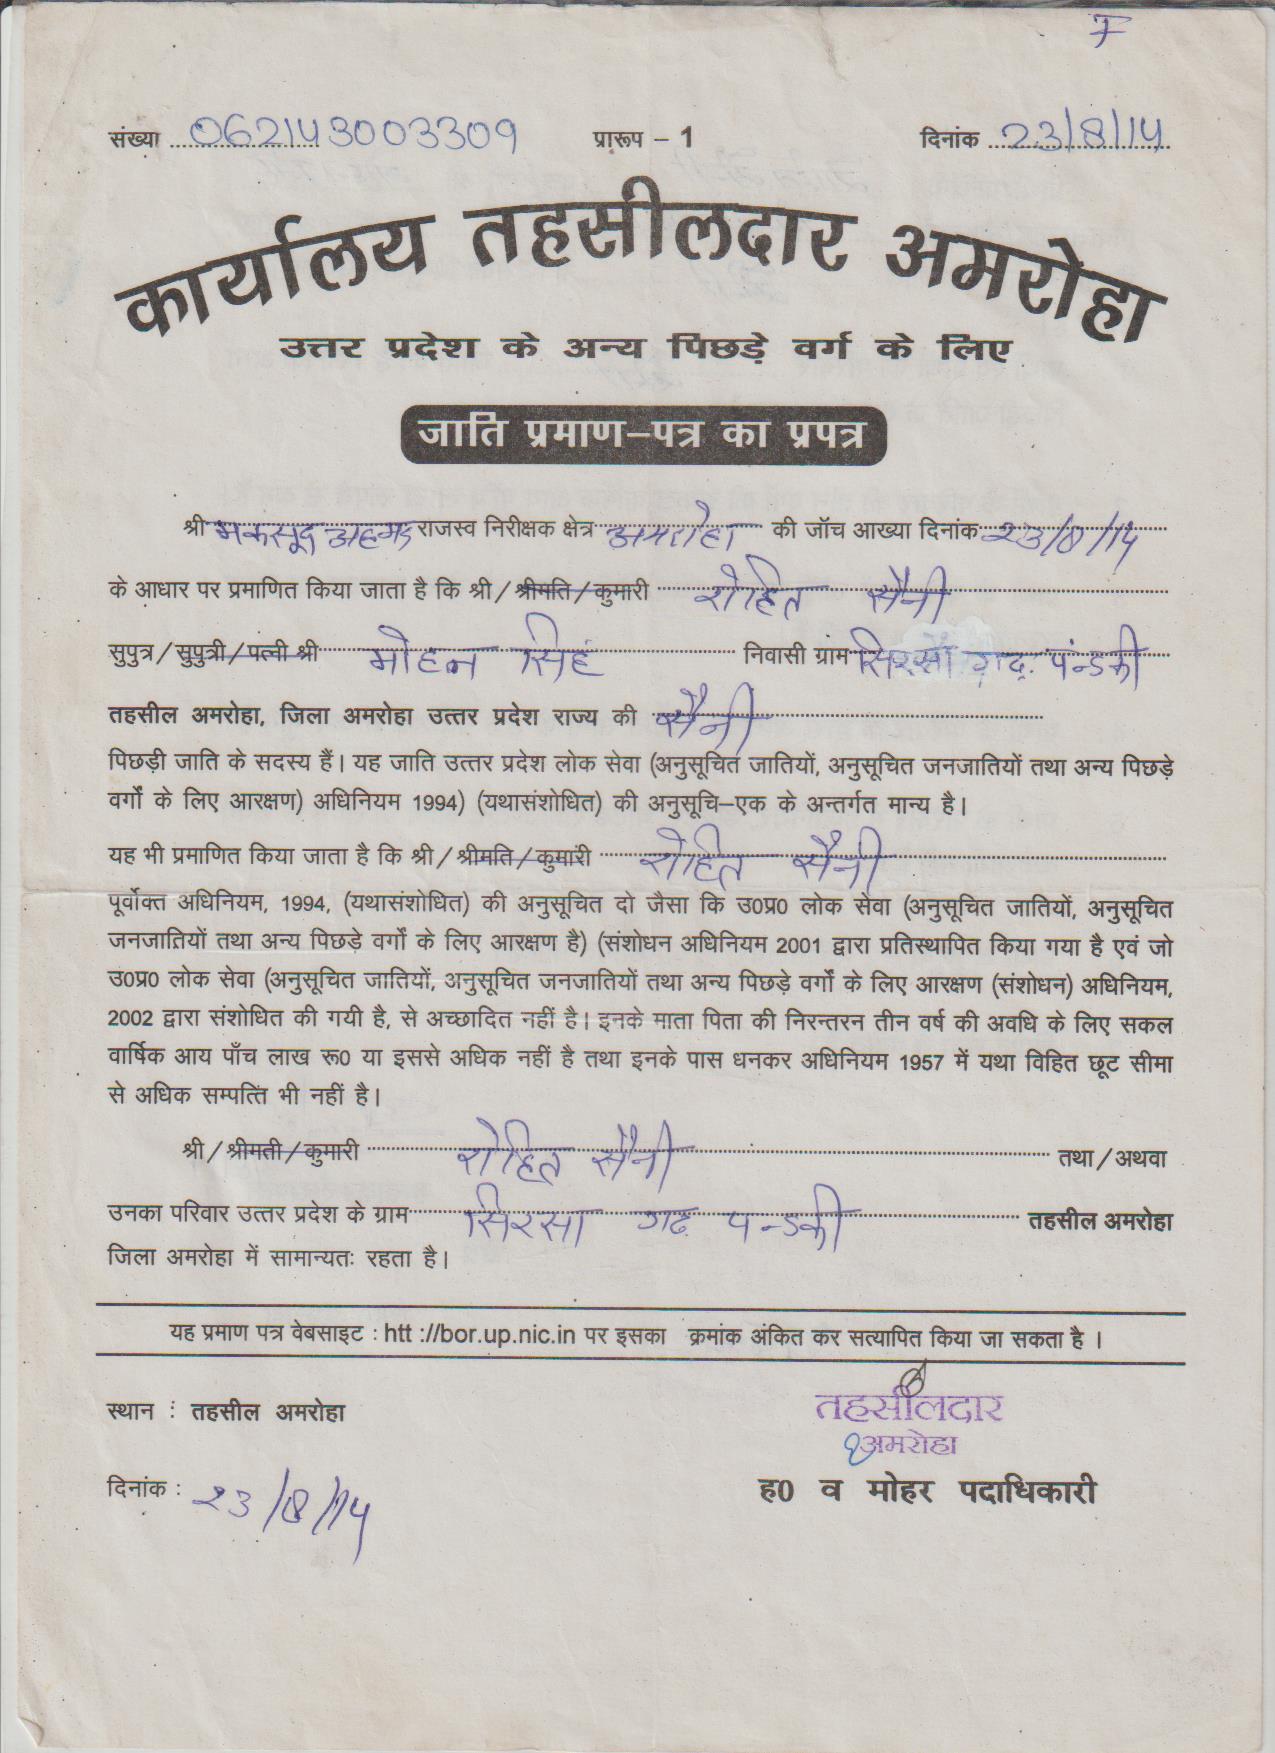 F
संख्या 062143003309 प्रारूप – 1 दिनांक 23/8/14
कार्यालय तहसीलदार अमरोहा
उत्तर प्रदेश के अन्य पिछड़े वर्ग के लिए
जाति प्रमाण–पत्र का प्रपत्र
श्री मकसूद अहमद राजस्व निरीक्षक क्षेत्र अमरोहा की जॉच आख्या दिनांक 23/8/14
के आधार पर प्रमाणित किया जाता है कि श्री / श्रीमति / कुमारी रोहित सैनी
सुपुत्र / सुपुत्री / पत्नी श्री मोहन सिहं निवासी ग्राम सिरसा गढ़ पन्डकी
तहसील अमरोहा, जिला अमरोहा उत्तर प्रदेश राज्य की सैनी
पिछड़ी जाति के सदस्य हैं। यह जाति उत्तर प्रदेश लोक सेवा (अनुसूचित जातियों, अनुसूचित जनजातियों तथा अन्य पिछड़े
वर्गों के लिए आरक्षण) अधिनियम 1994) (यथासंशोधित) की अनुसूचि–एक के अन्तर्गत मान्य है।
यह भी प्रमाणित किया जाता है कि श्री / श्रीमति / कुमारी रोहित सैनी
पूर्वोक्त अधिनियम, 1994, (यथासंशोधित) की अनुसूचित दो जैसा कि उ0प्र0 लोक सेवा (अनुसूचित जातियों, अनुसूचित
जनजातियों तथा अन्य पिछड़े वर्गों के लिए आरक्षण है) (संशोधन अधिनियम 2001 द्वारा प्रतिस्थापित किया गया है एवं जो
उ0प्र0 लोक सेवा (अनुसूचित जातियों, अनुसूचित जनजातियों तथा अन्य पिछड़े वर्गों के लिए आरक्षण (संशोधन) अधिनियम,
2002 द्वारा संशोधित की गयी है, से अच्छादित नहीं है। इनके माता पिता की निरन्तरन तीन वर्ष की अवधि के लिए सकल
वार्षिक आय पाँच लाख रू0 या इससे अधिक नहीं है तथा इनके पास धनकर अधिनियम 1957 में यथा विहित छूट सीमा
से अधिक सम्पत्ति भी नहीं है।
श्री / श्रीमती / कुमारी रोहित सैनी तथा / अथवा
उनका परिवार उत्तर प्रदेश के ग्राम सिरसा गढ़ पन्डकी तहसील अमरोहा
जिला अमरोहा में सामान्यतः रहता है।
यह प्रमाण पत्र वेबसाइट : htt ://bor.up.nic.in पर इसका क्रमांक अंकित कर सत्यापित किया जा सकता है ।
स्थान : तहसील अमरोहा
तहसीलदार
अमरोहा
दिनांक : 23/8/14
ह0 व मोहर पदाधिकारी